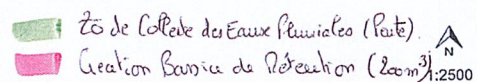 Zo de Collecte des Eaux Pluviales (Pente).
Creation Bassin de Rétention (200m³)
N
1:2500